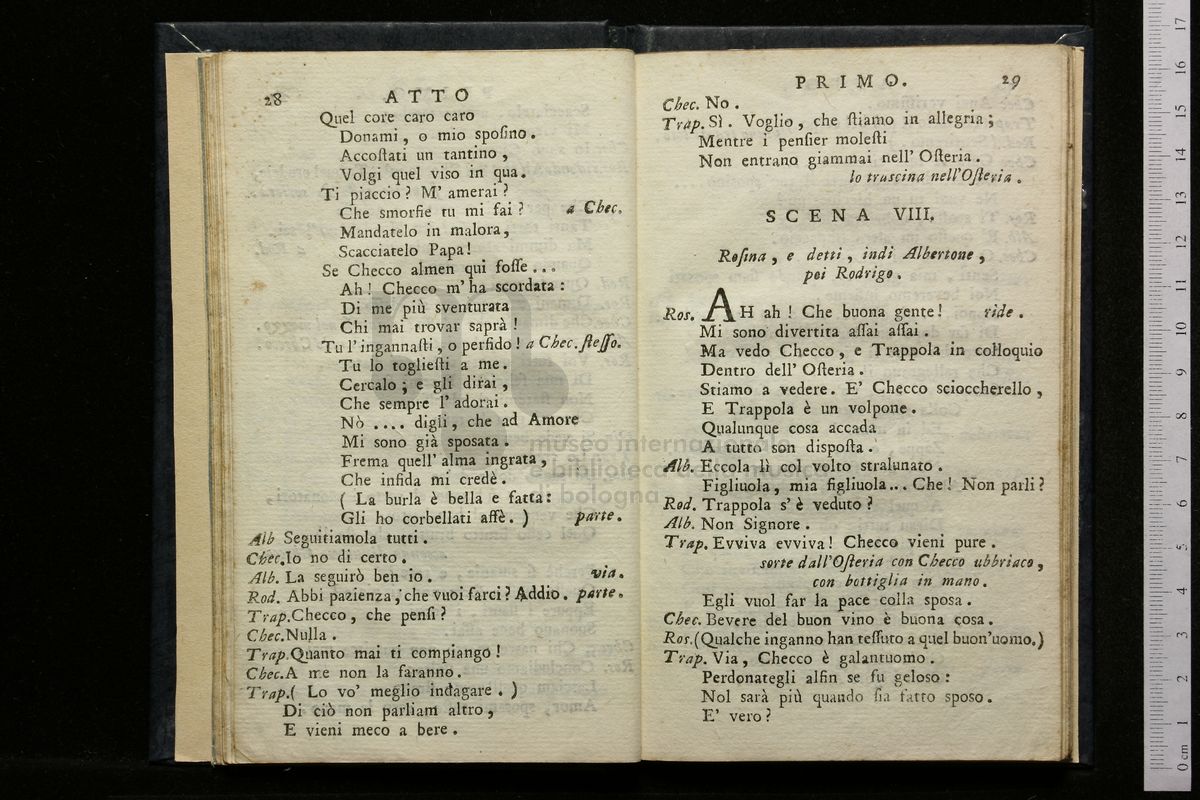 28 ATTO
Quel core caro caro
Donami, o mio sposino.
Accoſtati un tantino,
Volgi quel viso in qua.
Ti piaccio? M' amerai?
Che smorfie tu mi fai? a Chec.
Mandatelo in malora,
Scacciatelo Papa!
Se Checco almen qui foſſe...
Ah! Checco m' ha scordata:
Di me più sventurata
Chi mai trovar saprà!
Tu l' ingannaſti, o perfido! a Chec. ſteſſo.
Tu lo toglieſti a me.
Cercalo; e gli dirai,
Che sempre l' adorai.
Nò .... digli, che ad Amore
Mi sono già sposata.
Frema quell' alma ingrata,
Che infida mi credè.
( La burla è bella e fatta:
Gli ho corbellati affè. ) parte.
Alb Seguitiamola tutti.
Chec. Io no di certo.
Alb. La seguirò ben io. via.
Rod. Abbi pazienza, che vuoi farci? Addio. parte.
Trap. Checco, che penſi?
Chec. Nulla.
Trap. Quanto mai ti compiango!
Chec. A me non la faranno.
Trap. ( Lo vo' meglio indagare. )
Di ciò non parliam altro,
E vieni meco a bere.
PRIMO. 29
Chec. No.
Trap. Sì. Voglio, che ſtiamo in allegria;
Mentre i penſier moleſti
Non entrano giammai nell' Oſteria.
lo truscina nell'Oſteria.
SCENA VIII.
Roſina, e detti, indi Albertone,
poi Rodrigo.
Ros. AH ah! Che buona gente! ride.
Mi sono divertita aſſai aſſai.
Ma vedo Checco, e Trappola in colloquio
Dentro dell' Oſteria.
Stiamo a vedere. E' Checco scioccherello,
E Trappola è un volpone.
Qualunque cosa accada
A tutto son dispoſta.
Alb. Eccola lì col volto stralunato.
Figliuola, mia figliuola... Che! Non parli?
Rod. Trappola s' è veduto?
Alb. Non Signore.
Trap. Evviva evviva! Checco vieni pure.
sorte dall'Oſteria con Checco ubbriaco,
con bottiglia in mano.
Egli vuol far la pace colla sposa.
Chec. Bevere del buon vino è buona cosa.
Ros. (Qualche inganno han teſſuto a quel buon'uomo.)
Trap. Via, Checco è galantuomo.
Perdonategli alfin se fu geloso:
Nol sarà più quando ſia fatto sposo.
E' vero?
museo internazionale
e biblioteca della musica
bologna
0 cm 1 2 3 4 5 6 7 8 9 10 11 12 13 14 15 16 17